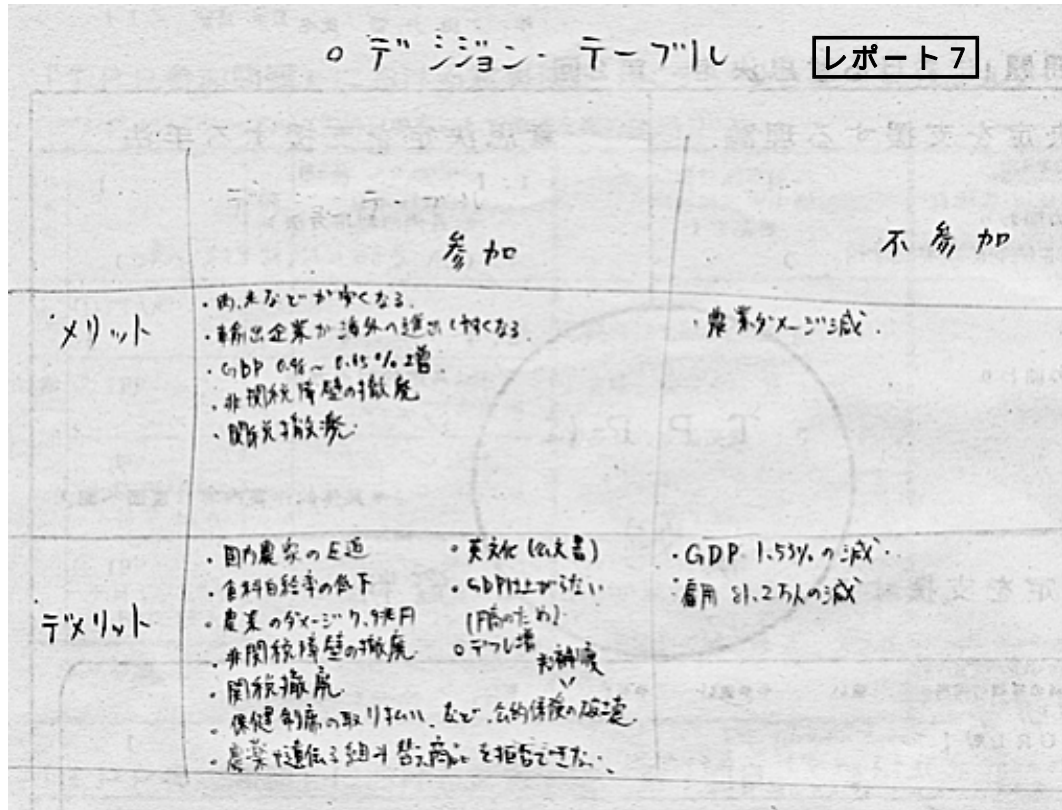 ○デシジョン・テーブル
レポート7
参加
不参加
メリット
・肉、米などが安くなる.
・輸出企業が海外へ進出しやすくなる
・GDP 0.48~0.65%増.
・非関税障壁の撤廃
・関税撤廃.
・農業ダメージ減.
デメリット
・国内農家の圧迫
・食料自給率の低下
・農業のダメージ 7.9兆円
・非関税障壁の撤廃
・関税撤廃
・保健制度の取り払い、など、公的保険の破壊
・農薬や遺伝子組み替え商品を拒否できない.
・英文化(公文書)
・GDPは上がらない
○デフレ増
・GDP 1.53%の減.
・雇用 81.2万人の減